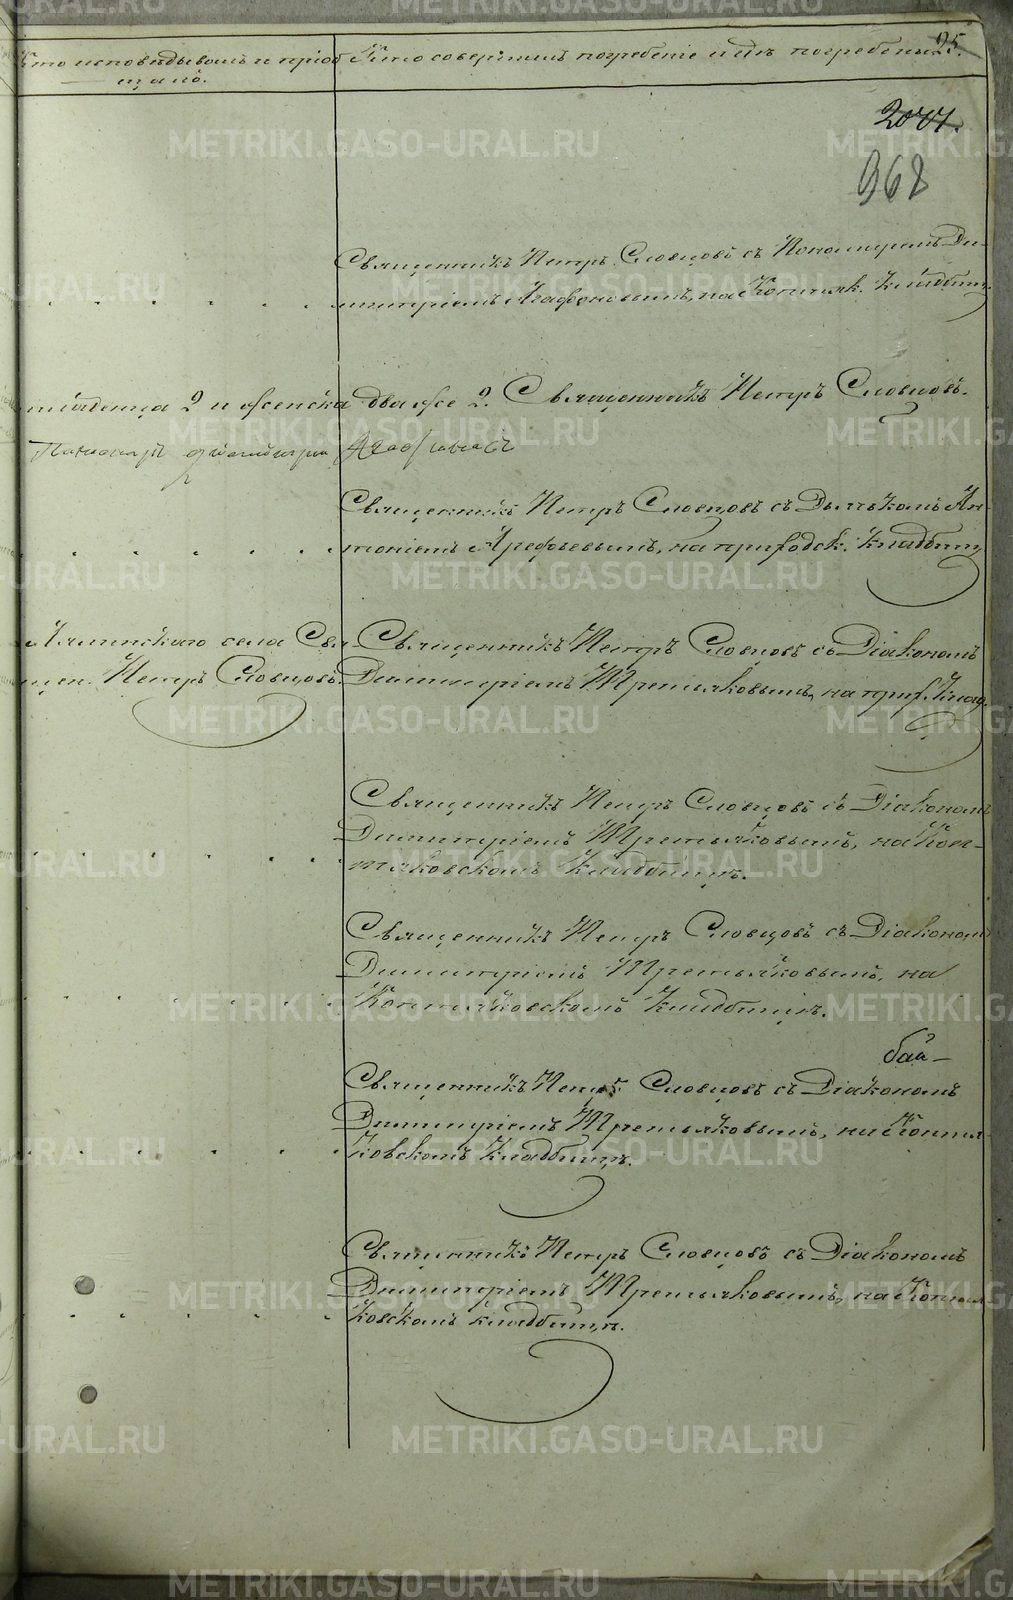 25.
Кто исповѣдывалъ и пріоб-
щалъ.
Кто совершилъ погребеніе и гдѣ погребены.
968
Священникъ Петръ Словцовъ съ Пономаремъ Ди-
митріемъ Агафоновымъ, на Коптяк. кладбищ.
младенца 2 и женска два же 2. Священникъ Петръ Словцовъ.
Священникъ Петръ Словцовъ съ Дьячкомъ Ан-
тоніемъ Арефьевымъ, на приходск. кладбищ.
Лялинскаго села Свя-
щен. Петръ Словцовъ.
Священникъ Петръ Словцовъ съ Діакономъ
Димитріемъ Третьяковымъ, на прих. клад.
Священникъ Петръ Словцовъ съ Діакономъ
Димитріемъ Третьяковымъ, на Коп-
тяковскомъ кладбищѣ.
Священникъ Петръ Словцовъ съ Діакономъ
Димитріемъ Третьяковымъ, на
Коптяковскомъ кладбищѣ.
бай-
Священникъ Петръ Словцовъ съ Діакономъ
Димитріемъ Третьяковымъ, на Коптя-
ковскомъ кладбищѣ.
Священникъ Петръ Словцовъ съ Діакономъ
Димитріемъ Третьяковымъ, на Коптя-
ковскомъ кладбищѣ.
METRIKI.GASO-URAL.RU